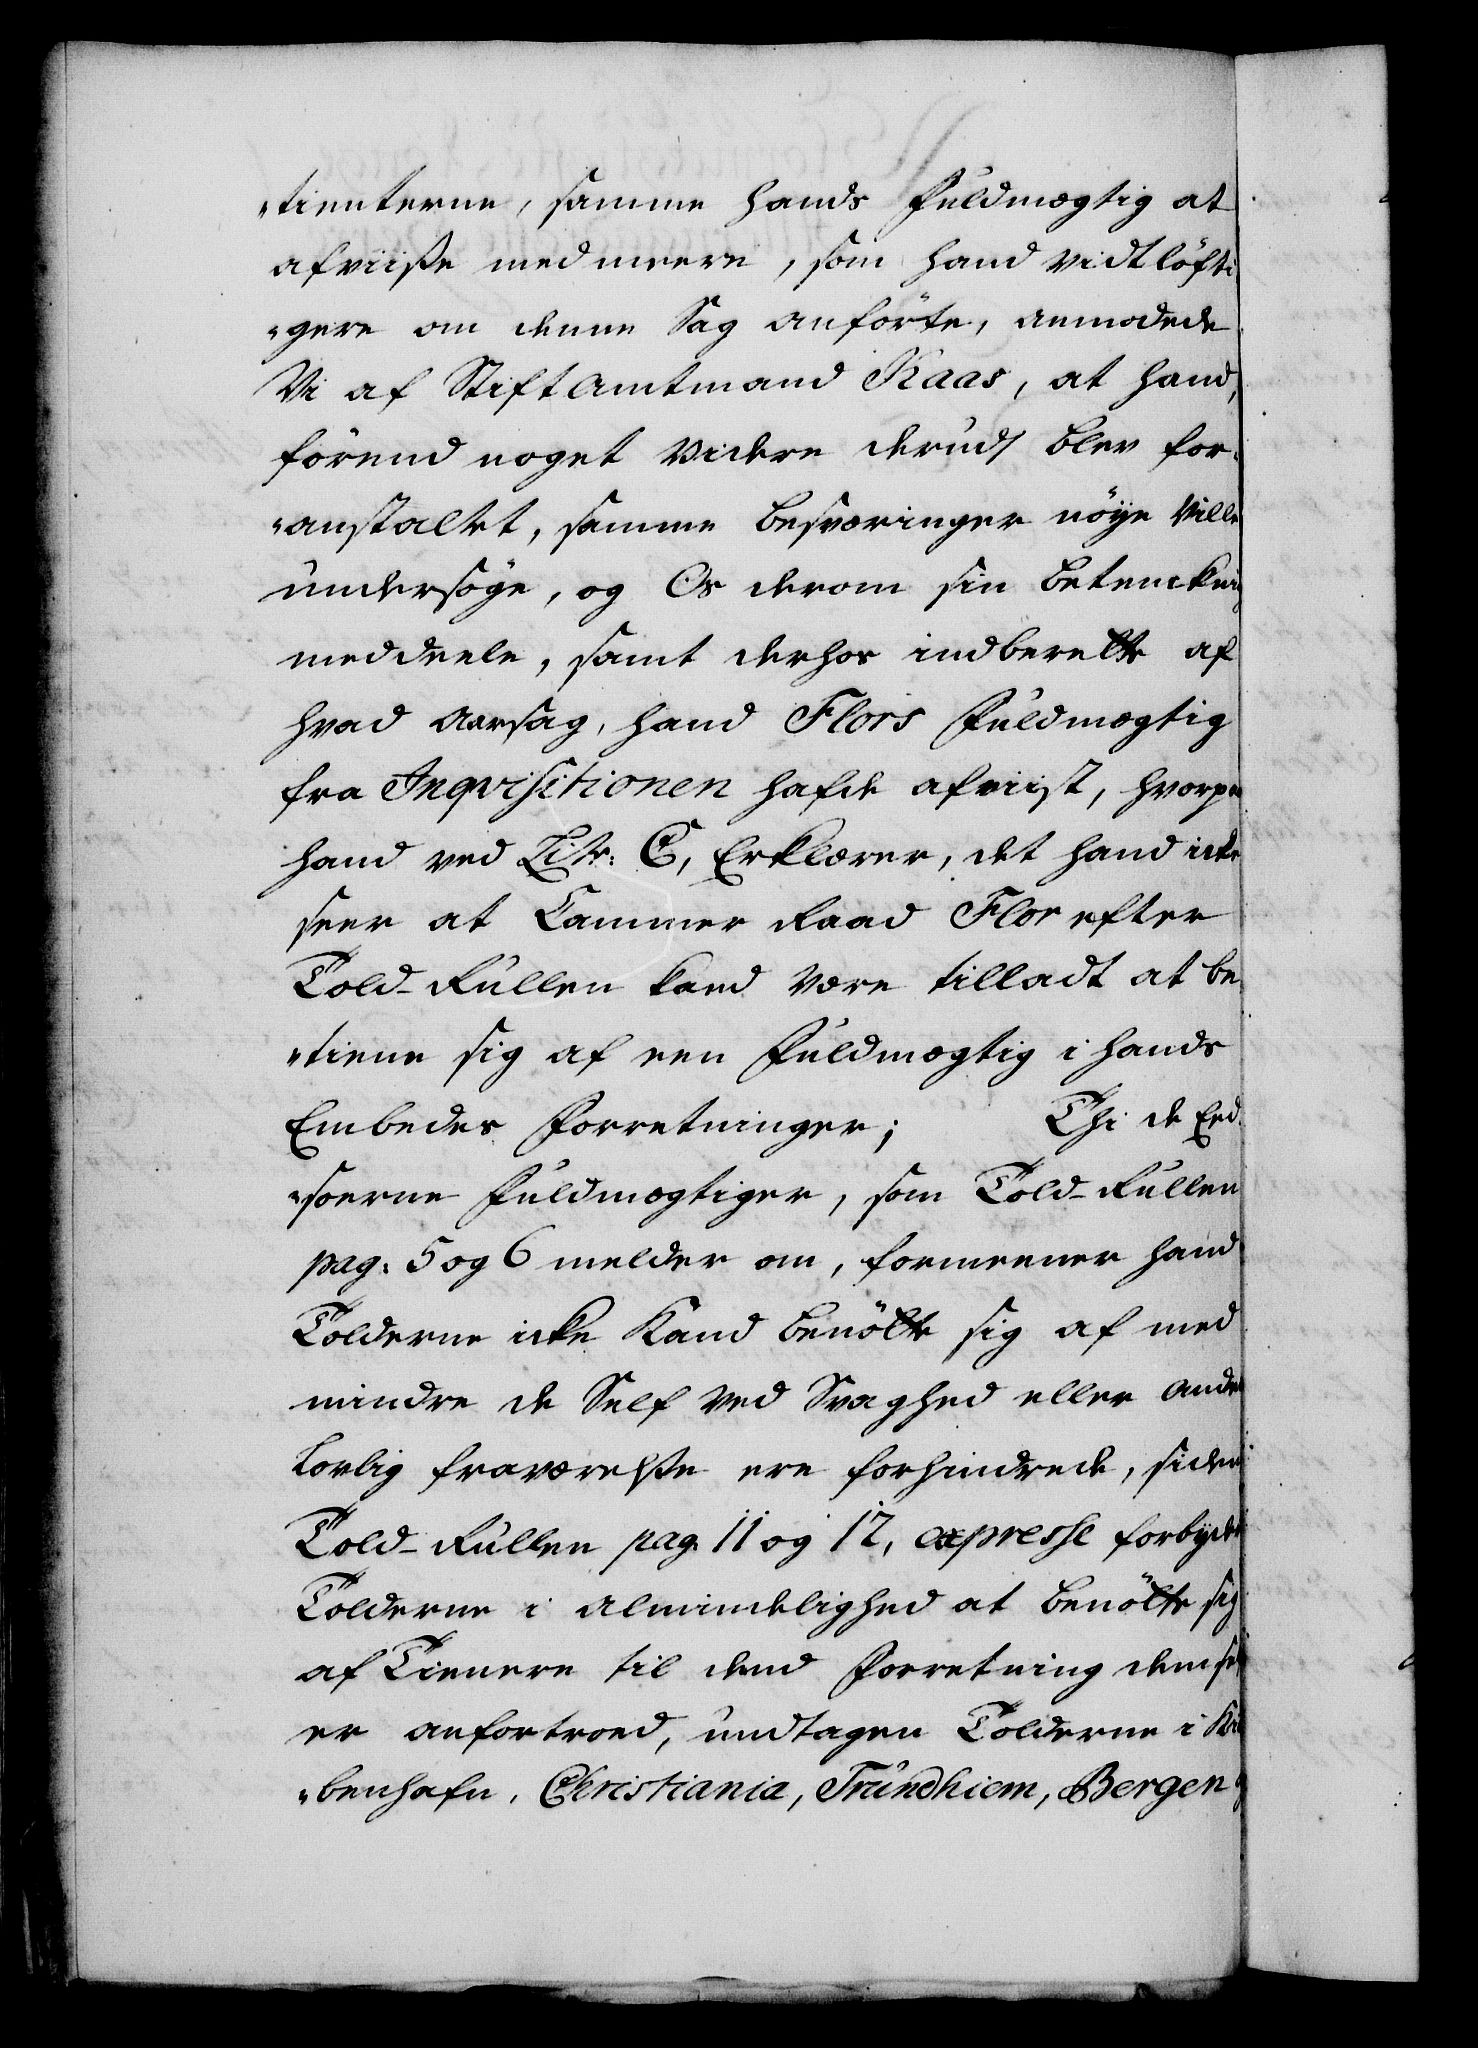 "tienterne, samme hands Fuldmægtig at
afviiße med meere, som hand vidtlöfti
"gere om denne Sag anförte, anmodede
Vi af Stiftamtmand Kaas, at hand,
förend noget videre derudj blev for-
"anstaltet, samme besværinger nöye ville
undersöge, og Os derom sin betencking
meddeele, samt derhos indberette af
hvad Aarsag, hand Flors Fuldmægtig
fra Inqvisitionen hafde afviist, hvorpaa
hand ved Litr: C, Erklærer, det hand icke
seer at Cammer Raad Flor efter
Told-Rullen kand være tilladt at be
"tiene sig af een Fuldmægtig i hands
Embedes Forretninger; Thi de Eed
"soerne Fuldmægtiger, som Told-Rullen
pag: 5 og 6 melder om, formeener hand
Tolderne icke kand benötte sig af med
mindre de Self ved Svaghed eller anden
lovlig fraværelße ere forhindrede, siden
Told-Rullen pag 11 og 12, expresse forbyder
Tolderne i almindelighed at benötte sig
af Tienere til dend Forretning dem self
er anfortroed, undtagen Tolderne i Kiö
"benhafn, Christiania, Trundhiem, Bergen og